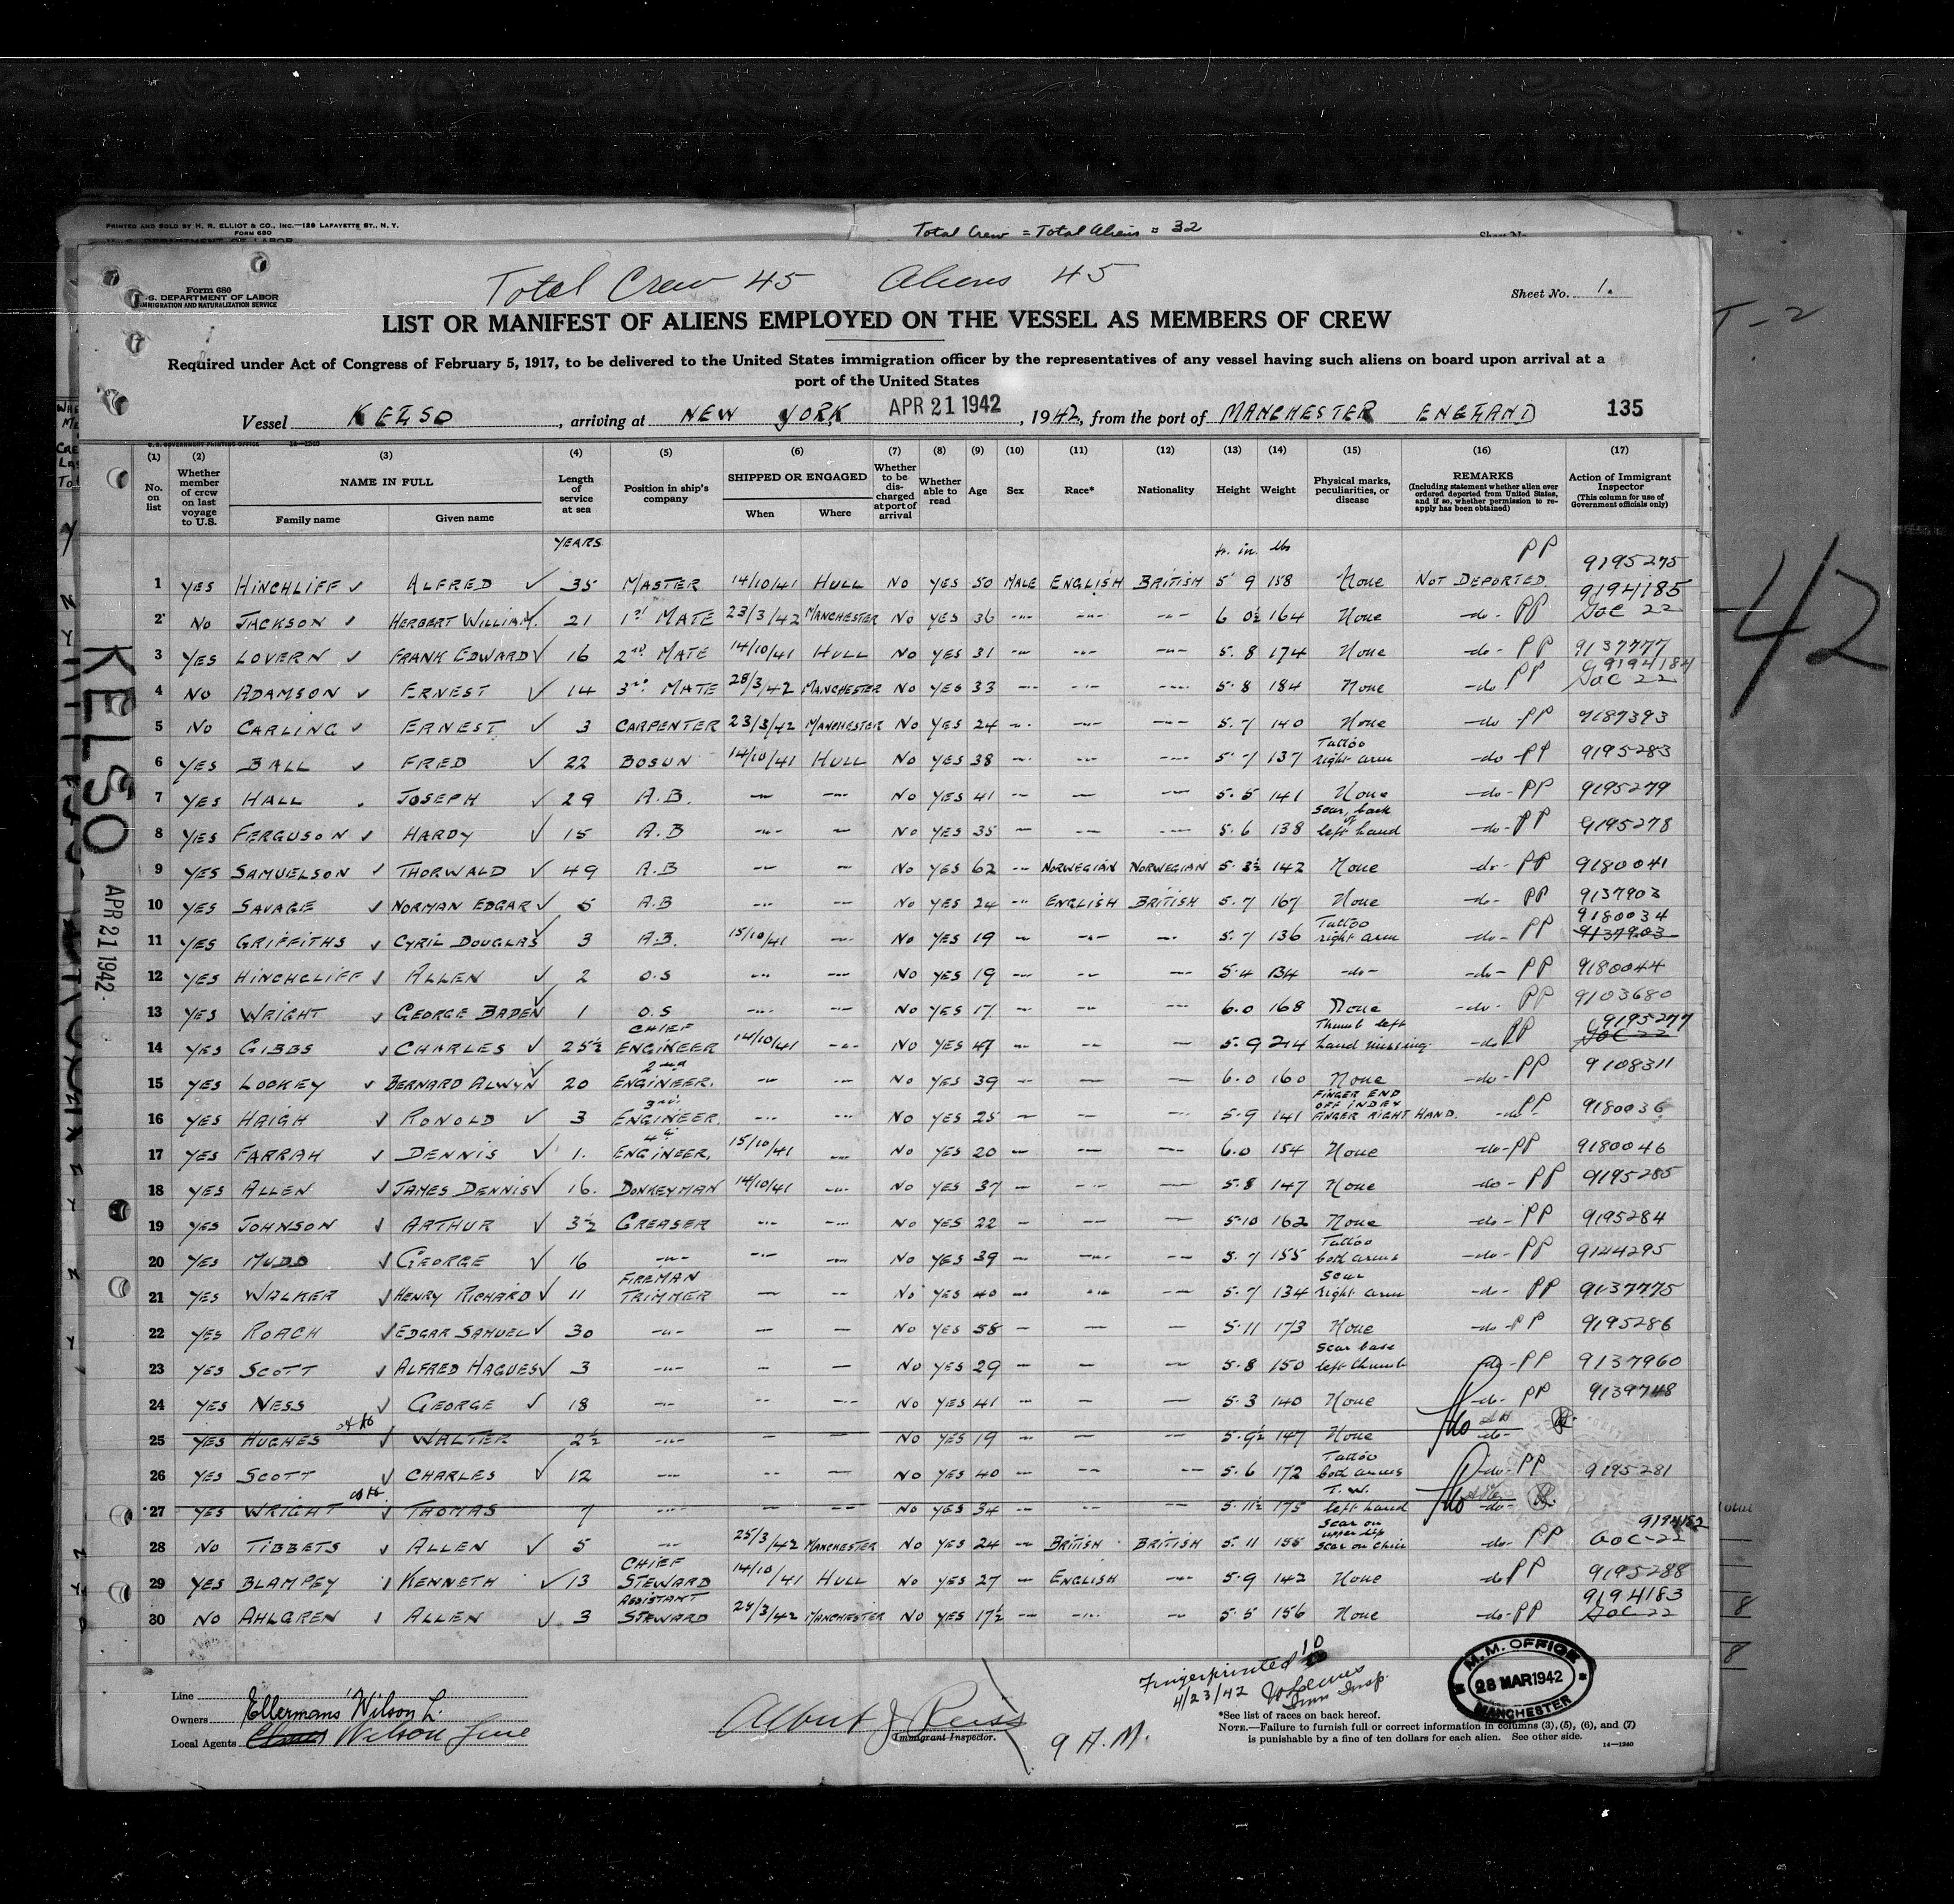 PRINTED AND SOLD BY H. R. ELLIOT & CO., INC.—129 LAFAYETTE ST., N. Y.
FORM 680
Total Crew = Total Aliens = 32
Total Crew 45 Aliens 45
Form 680
U.S. DEPARTMENT OF LABOR
IMMIGRATION AND NATURALIZATION SERVICE
Sheet No. 1.
LIST OR MANIFEST OF ALIENS EMPLOYED ON THE VESSEL AS MEMBERS OF CREW
Required under Act of Congress of February 5, 1917, to be delivered to the United States immigration officer by the representatives of any vessel having such aliens on board upon arrival at a
port of the United States
Vessel KELSO, arriving at NEW YORK, APR 21 1942, 1942, from the port of MANCHESTER ENGLAND 135
U. S. GOVERNMENT PRINTING OFFICE 14—1240
(1) (2) (3) (4) (5) (6) (7) (8) (9) (10) (11) (12) (13) (14) (15) (16) (17)
No. on list
Whether member of crew on last voyage to U.S.
NAME IN FULL
Family name Given name
Length of service at sea
Position in ship's company
SHIPPED OR ENGAGED
When Where
Whether to be discharged at port of arrival
Whether able to read
Age
Sex
Race*
Nationality
Height
Weight
Physical marks, peculiarities, or disease
REMARKS
(Including statement whether alien ever ordered deported from United States, and if so, whether permission to reapply has been obtained)
Action of Immigrant Inspector
(This column for use of Government officials only)
YEARS ft. in. lbs PP 9195275
1 YES HINCHLIFF ALFRED 35 MASTER 14/10/41 HULL NO YES 50 MALE ENGLISH BRITISH 5 9 158 None NOT DEPORTED
2 NO JACKSON HERBERT WILLIAM. 21 1st MATE 23/3/42 MANCHESTER NO YES 36 —"— —"— —"— 6 0½ 164 None -do- PP 9194185 GOC 22
3 YES LOVERN FRANK EDWARD 16 2nd MATE 14/10/41 HULL NO YES 31 —"— —"— —"— 5.8 174 None -do- PP 9137777
4 NO ADAMSON ERNEST 14 3rd MATE 28/3/42 MANCHESTER NO YES 33 —"— —"— —"— 5.8 184 None -do- PP 9194184 GOC 22
5 NO CARLING ERNEST 3 CARPENTER 23/3/42 MANCHESTER NO YES 24 —"— —"— —"— 5.7 140 None -do- PP 9187393
6 YES BALL FRED 22 BOSUN 14/10/41 HULL NO YES 38 —"— —"— —"— 5.7 137 Tattoo right arm -do- PP 9195283
7 YES HALL JOSEPH 29 A.B. —"— —"— NO YES 41 —"— —"— —"— 5.5 141 None -do- PP 9195279
8 YES FERGUSON HARDY 15 A.B —"— —"— NO YES 35 —"— —"— —"— 5.6 138 Scar, back of left hand -do- PP 9195278
9 YES SAMUELSON THORWALD 49 A.B —"— —"— NO YES 62 —"— NORWEGIAN NORWEGIAN 5.3½ 142 None -do- PP 9180041
10 YES SAVAGE NORMAN EDGAR 5 A.B —"— —"— NO YES 24 —"— ENGLISH BRITISH 5.7 167 None -do- PP 9137903
11 YES GRIFFITHS CYRIL DOUGLAS 3 A.B. 15/10/41 —"— NO YES 19 —"— —"— —"— 5.7 136 Tattoo right arm -do- PP 9180034 9137903
12 YES HINCHCLIFF ALLEN 2 O.S —"— —"— NO YES 19 —"— —"— —"— 5.4 134 -do- -do- PP 9180044
13 YES WRIGHT GEORGE BADEN 1 O.S —"— —"— NO YES 17 —"— —"— —"— 6.0 168 None -do- PP 9103680
14 YES GIBBS CHARLES 25½ CHIEF ENGINEER 14/10/41 —"— NO YES 47 —"— —"— —"— 5.9 214 Thumb left hand missing -do- PP 9195277 GOC 22
15 YES LOOKEY BERNARD ALWYN 20 2nd ENGINEER. —"— —"— NO YES 39 —"— —"— —"— 6.0 160 None -do- PP 9108311
16 YES HAIGH RONOLD 3 3rd ENGINEER. —"— —"— NO YES 25 —"— —"— —"— 5.9 141 FINGER END OFF INDEX FINGER RIGHT HAND. -do- PP 9180036
17 YES FARRAH DENNIS 1. 4th ENGINEER. 15/10/41 —"— NO YES 20 —"— —"— —"— 6.0 154 None -do- PP 9180046
18 YES ALLEN JAMES DENNIS 16. DONKEYMAN 14/10/41 —"— NO YES 37 —"— —"— —"— 5.8 147 None -do- PP 9195285
19 YES JOHNSON ARTHUR 3½ GREASER —"— —"— NO YES 22 —"— —"— —"— 5.10 162 None -do- PP 9195284
20 YES MUDD GEORGE 16 —"— —"— —"— NO YES 39 —"— —"— —"— 5.7 155 Tattoo both arms -do- PP 9144295
21 YES WALKER HENRY RICHARD 11 FIREMAN TRIMMER —"— —"— NO YES 40 —"— —"— —"— 5.7 134 Scar right arm -do- PP 9137775
22 YES ROACH EDGAR SAMUEL 30 —"— —"— —"— NO YES 58 —"— —"— —"— 5.11 173 None -do- PP 9195286
23 YES SCOTT ALFRED HAGUES 3 —"— —"— —"— NO YES 29 —"— —"— —"— 5.8 150 Scar base left thumb -do- PP 9137960
24 YES NESS GEORGE 18 —"— —"— —"— NO YES 41 —"— —"— —"— 5.3 140 None -do- PP 9139748
25 YES HUGHES WALTER 2½ —"— —"— —"— NO YES 19 —"— —"— —"— 5.9½ 147 None -do-
26 YES SCOTT CHARLES 12 —"— —"— —"— NO YES 40 —"— —"— —"— 5.6 172 Tattoo both arms -do- PP 9195281
27 YES WRIGHT THOMAS 7 —"— —"— —"— NO YES 34 —"— —"— —"— 5.11½ 175 T.W. left hand -do-
28 NO TIBBETS ALLEN 5 —"— 25/3/42 MANCHESTER NO YES 24 —"— BRITISH BRITISH 5.11 155 Scar on upper lip Scar on chin -do- PP 9194182 GOC-22
29 YES BLAMPEY KENNETH 13 CHIEF STEWARD 14/10/41 HULL NO YES 27 —"— ENGLISH —"— 5.9 142 None -do- PP 9195288
30 NO AHLGREN ALLEN 3 ASSISTANT STEWARD 24/3/42 MANCHESTER NO YES 17½ —"— —"— —"— 5.5 156 None -do- PP 9194183 GOC-22
Line
Owners Ellermans Wilson L.
Local Agents Wilson Line
Albert J Reiss
Immigrant Inspector.
9 A.M.
Fingerprinted 10
4/23/42
Imm Insp.
M.M. OFFICE
28 MAR 1942
MANCHESTER
*See list of races on back hereof.
NOTE.—Failure to furnish full or correct information in columns (3), (5), (6), and (7)
is punishable by a fine of ten dollars for each alien. See other side.
14—1240
KELSO
APR 21 1942
T-2
42